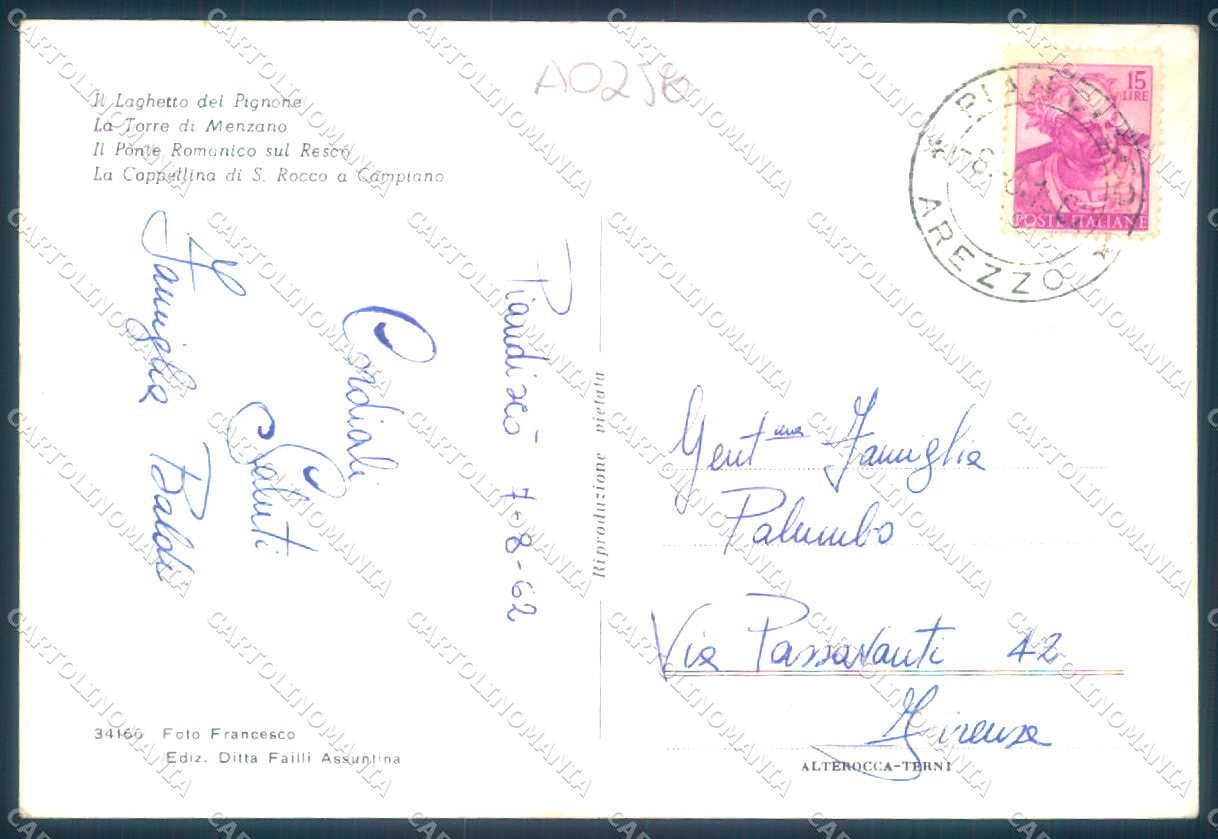 A0256
Il Laghetto del Pignone
La Torre di Menzano
Il Ponte Romanico sul Resco
La Cappellina di S. Rocco a Campiano
15
LIRE
POSTE ITALIANE
AREZZO
Piandiscò 7-8-62
Cordiali
Saluti
Famiglia Baldi
Riproduzione vietata
Gent.ma Famiglia
Palumbo
Via Passavanti 42
Firenze
34166 Foto Francesco
Ediz. Ditta Failli Assuntina
ALTEROCCA-TERNI
CARTOLINOMANIA